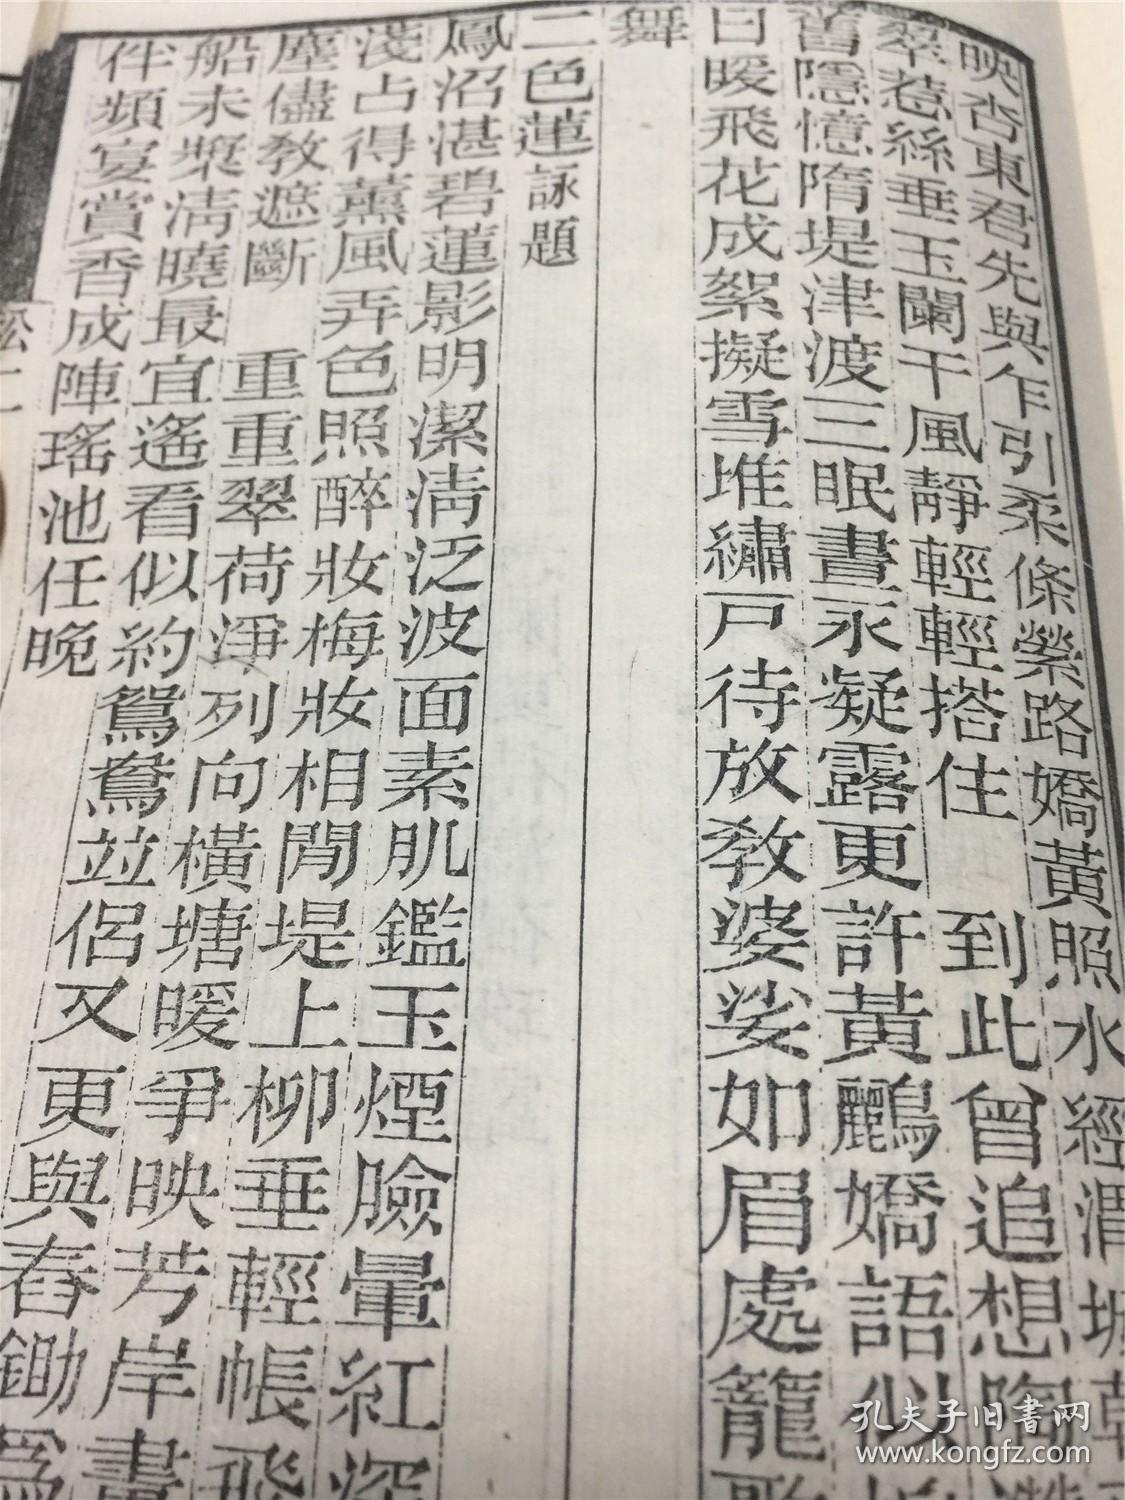 映杏東君先與乍引柔條縈路嬌黃照水經渭城
翠惹絲垂玉闌干風靜輕輕搭住 到此曾追想陶
舊隱憶隋堤津渡三眠晝永凝露更許黃鸝嬌語似
日暖飛花成絮擬雪堆繡戸待放教婆娑如眉處籠歌
舞
二色蓮詠題
鳳沼湛碧蓮影明潔清泛波面素肌鑑玉煙臉暈紅深
淺占得薰風弄色照醉妝梅妝相閒堤上柳垂輕帳飛
塵儘教遮斷 重重翠荷淨列向橫塘暖爭映芳岸畫
船未槳清曉最宜遙看似約鴛鴦竝侶又更與舂鋤爲
伴頻宴賞香成陣瑤池任晚
松二
孔夫子旧書网
www.kongfz.com